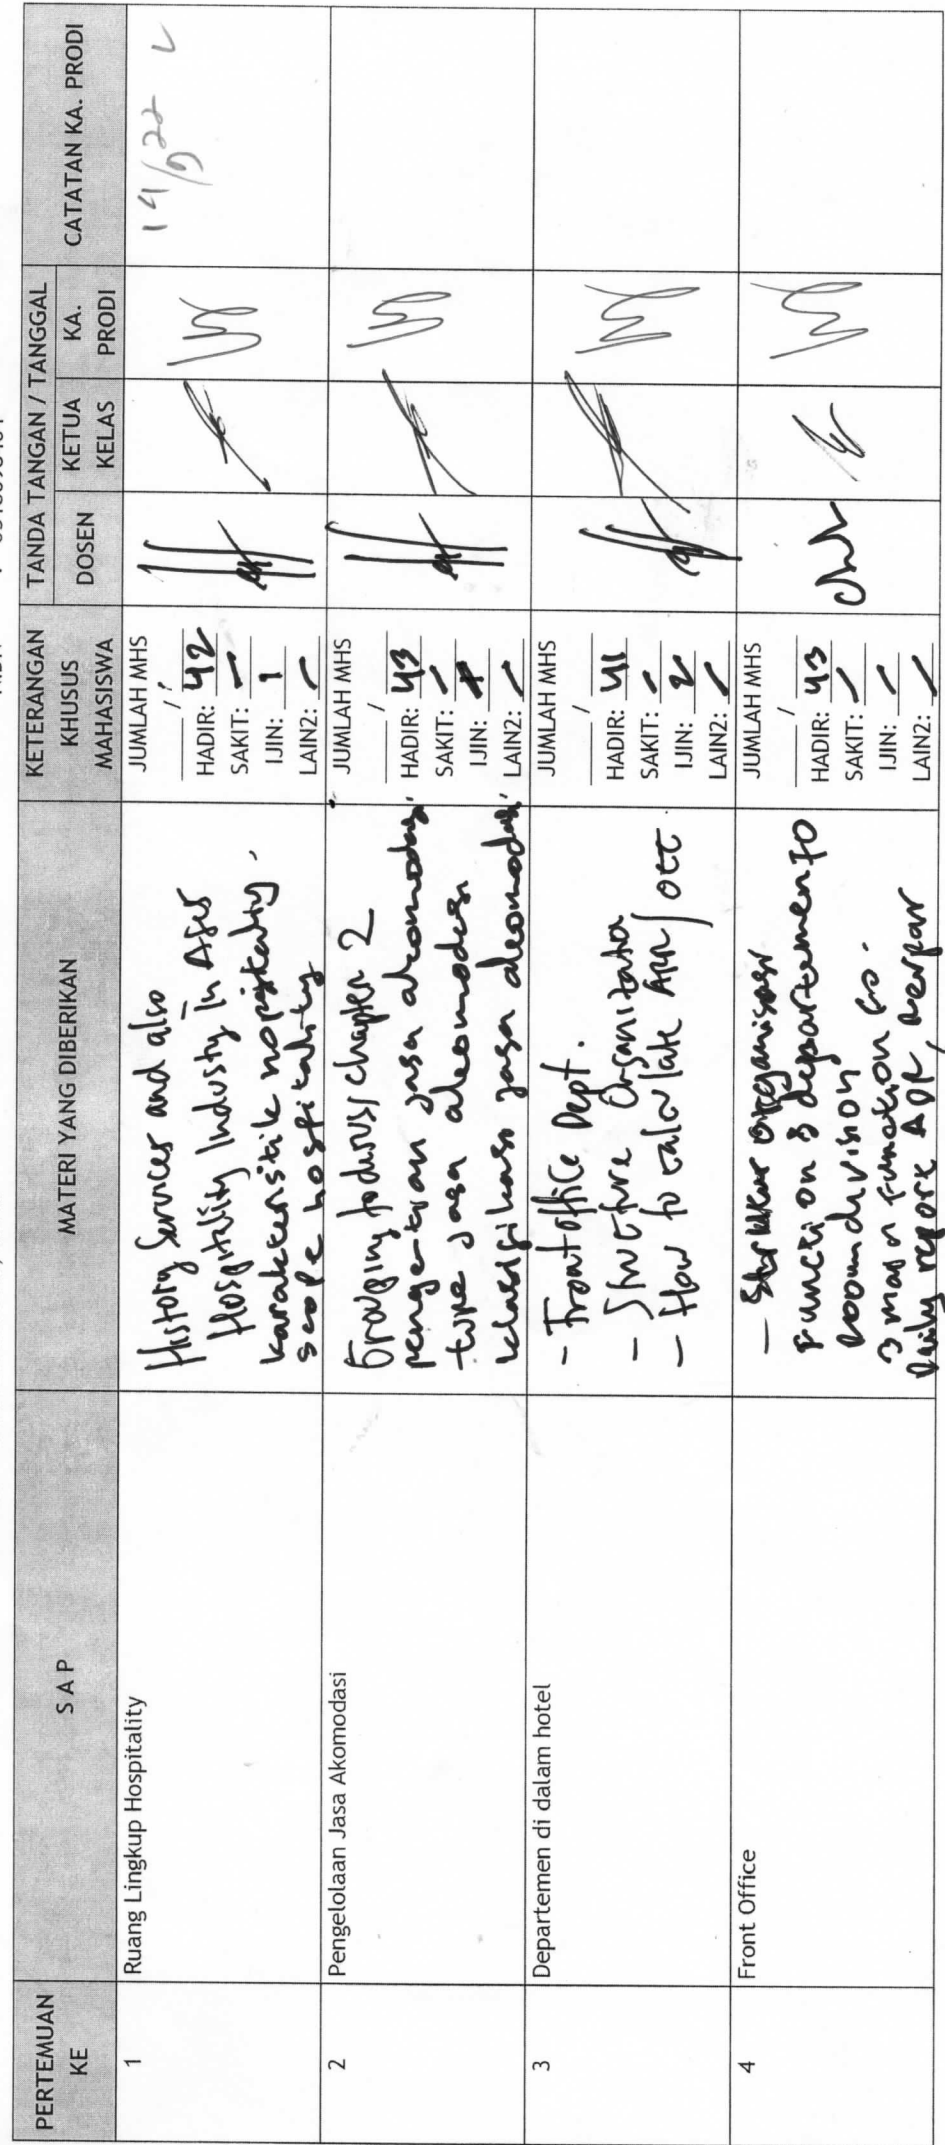 PERTEMUAN KE
S A P
MATERI YANG DIBERIKAN
KETERANGAN KHUSUS MAHASISWA
TANDA TANGAN / TANGGAL
DOSEN
KETUA KELAS
KA. PRODI
CATATAN KA. PRODI
1
Ruang Lingkup Hospitality
History Services and also
Hospitality Industry in
karakteristik hospitality.
scope hospitality
JUMLAH MHS
/
HADIR: 42
SAKIT: –
IJIN: 1
LAIN2: –
2
Pengelolaan Jasa Akomodasi
chapter 2
pengertian jasa akomodasi
type jasa akomodasi
klasifikasi jasa akomodasi
JUMLAH MHS
/
HADIR: 43
SAKIT: –
IJIN:
LAIN2: –
3
Departemen di dalam hotel
- Front office Dept.
- Structure Organization
- How to calculate ARR / OCC
JUMLAH MHS
/
HADIR: 41
SAKIT: –
IJIN: 2
LAIN2: –
4
Front Office
- organisasi
Function 3 departemen FO
room division
3 main function FO.
Daily report
JUMLAH MHS
/
HADIR: 43
SAKIT: –
IJIN: –
LAIN2: –